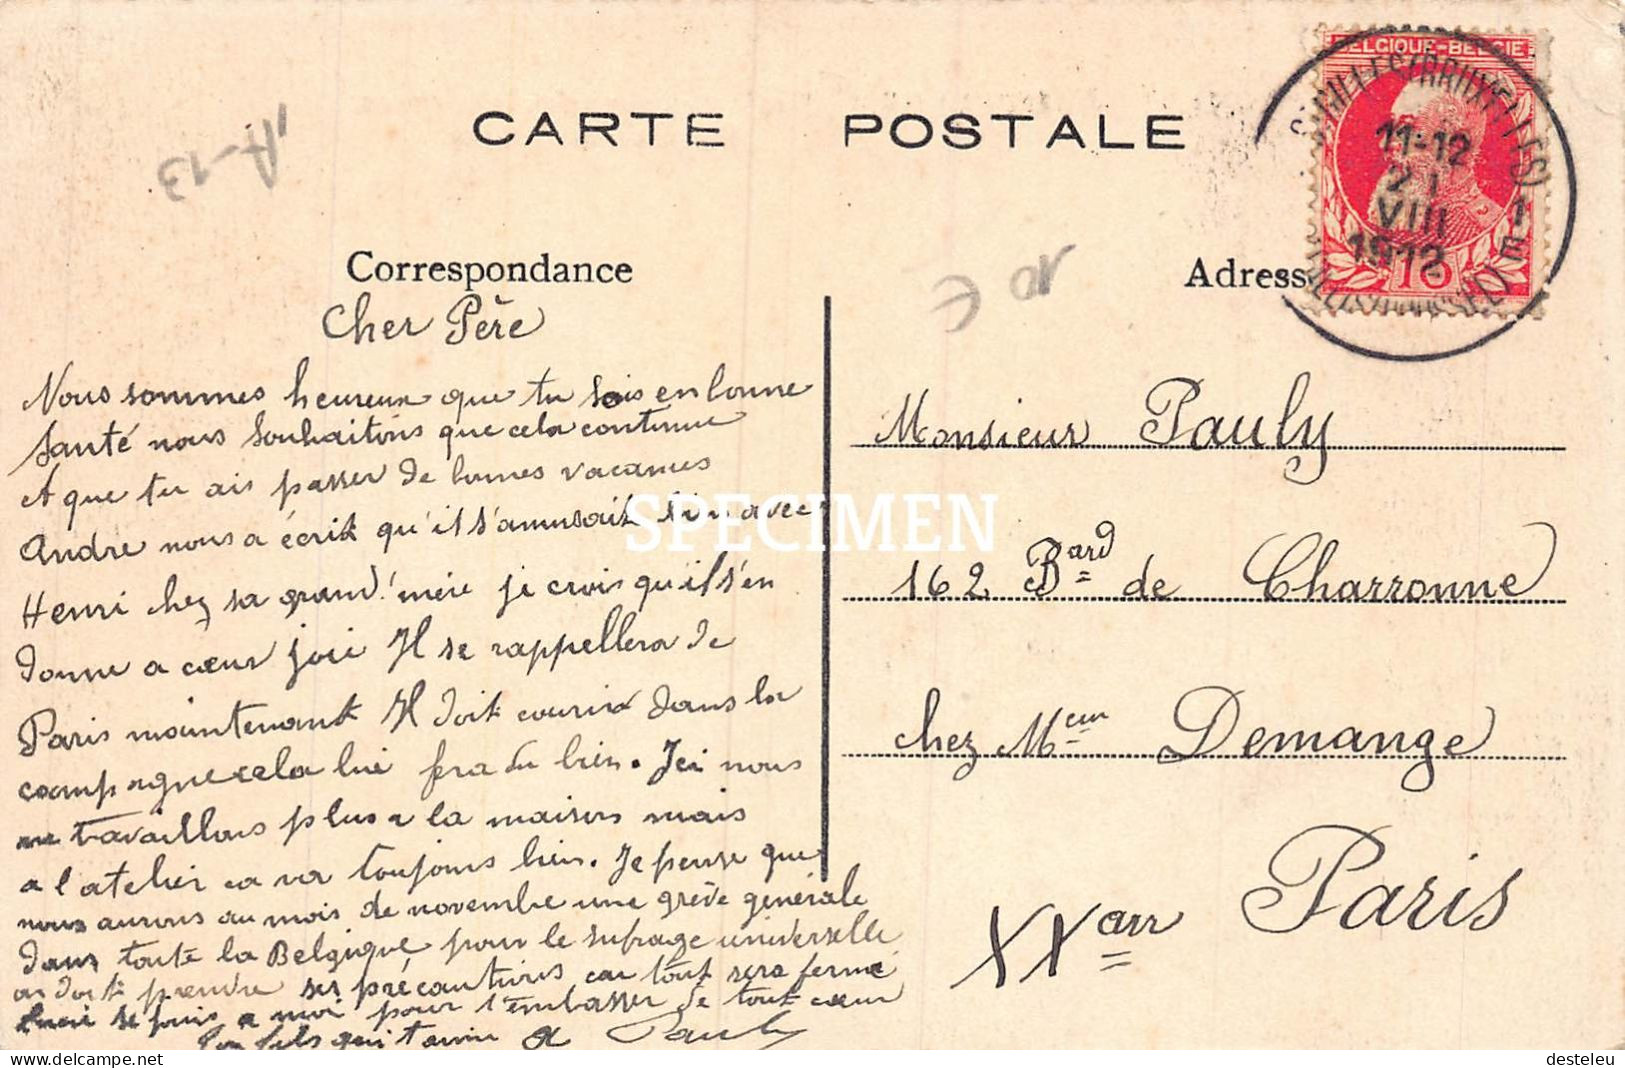 CARTE POSTALE
A-13
Correspondance
Cher Père
Nous sommes heureux que tu sois en bonne
santé nous souhaitons que cela continue
et que tu ais passer de bonnes vacances
André nous a écrit qu'il s'amusait bien avec
Henri chez sa grand'mère je crois qu'il s'en
donne a cœur joie Il se rappellera de
Paris maintenant Il doit courir dans la
campagne cela lui fera du bien. Ici nous
ne travaillons plus a la maison mais
a l'atelier ca va toujours bien. Je pense que
nous aurons au mois de novembre une grève générale
dans toute la Belgique pour le sufrage universelle
on doit prendre ses précautions car tout sera fermé
Lucie se joins a moi pour t'embrasser de tout cœur
Ton fils qui t'aime
Pauly
Adresse
BELGIQUE-BELGIE
11-12
21
VIII
1912
1
E
Monsieur Pauly
162 Bard de Charronne
chez Mr Demange
Paris
XXe arr
SPECIMEN
desteleu